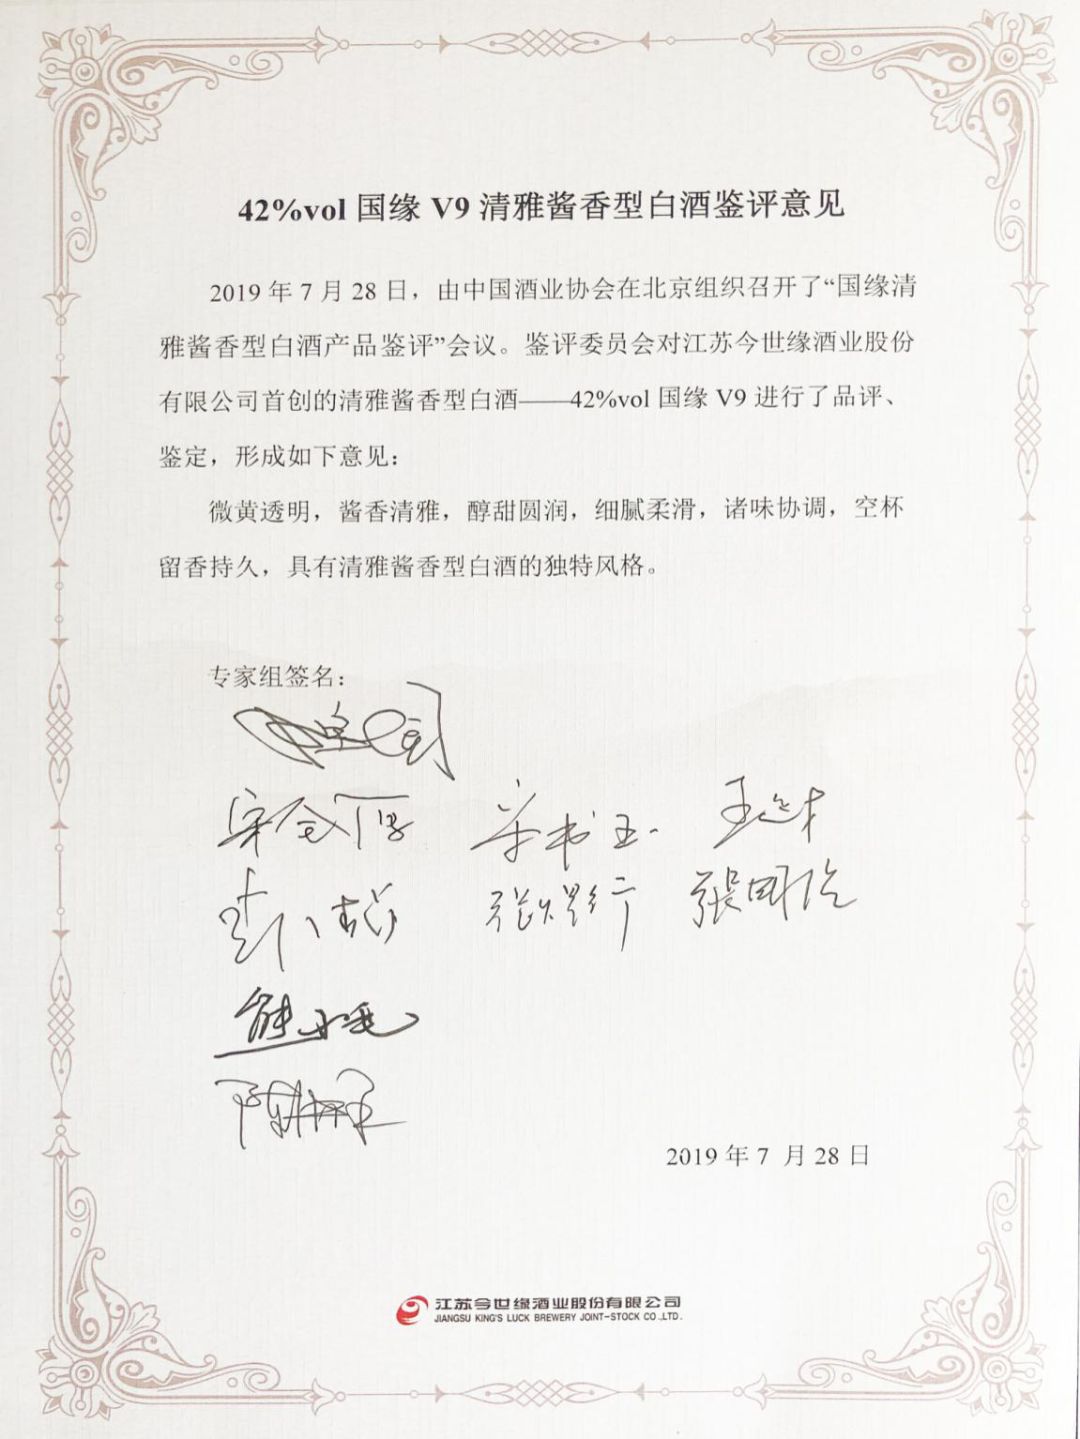 42%vol 国缘 V9 清雅酱香型白酒鉴评意见
2019 年 7 月 28 日，由中国酒业协会在北京组织召开了“国缘清
雅酱香型白酒产品鉴评”会议。鉴评委员会对江苏今世缘酒业股份
有限公司首创的清雅酱香型白酒——42%vol 国缘 V9 进行了品评、
鉴定，形成如下意见：
微黄透明，酱香清雅，醇甜圆润，细腻柔滑，诸味协调，空杯
留香持久，具有清雅酱香型白酒的独特风格。
专家组签名：
宋书玉
王延才
張国强
2019 年 7 月 28 日
江苏今世缘酒业股份有限公司
JIANGSU KING'S LUCK BREWERY JOINT-STOCK CO.,LTD.